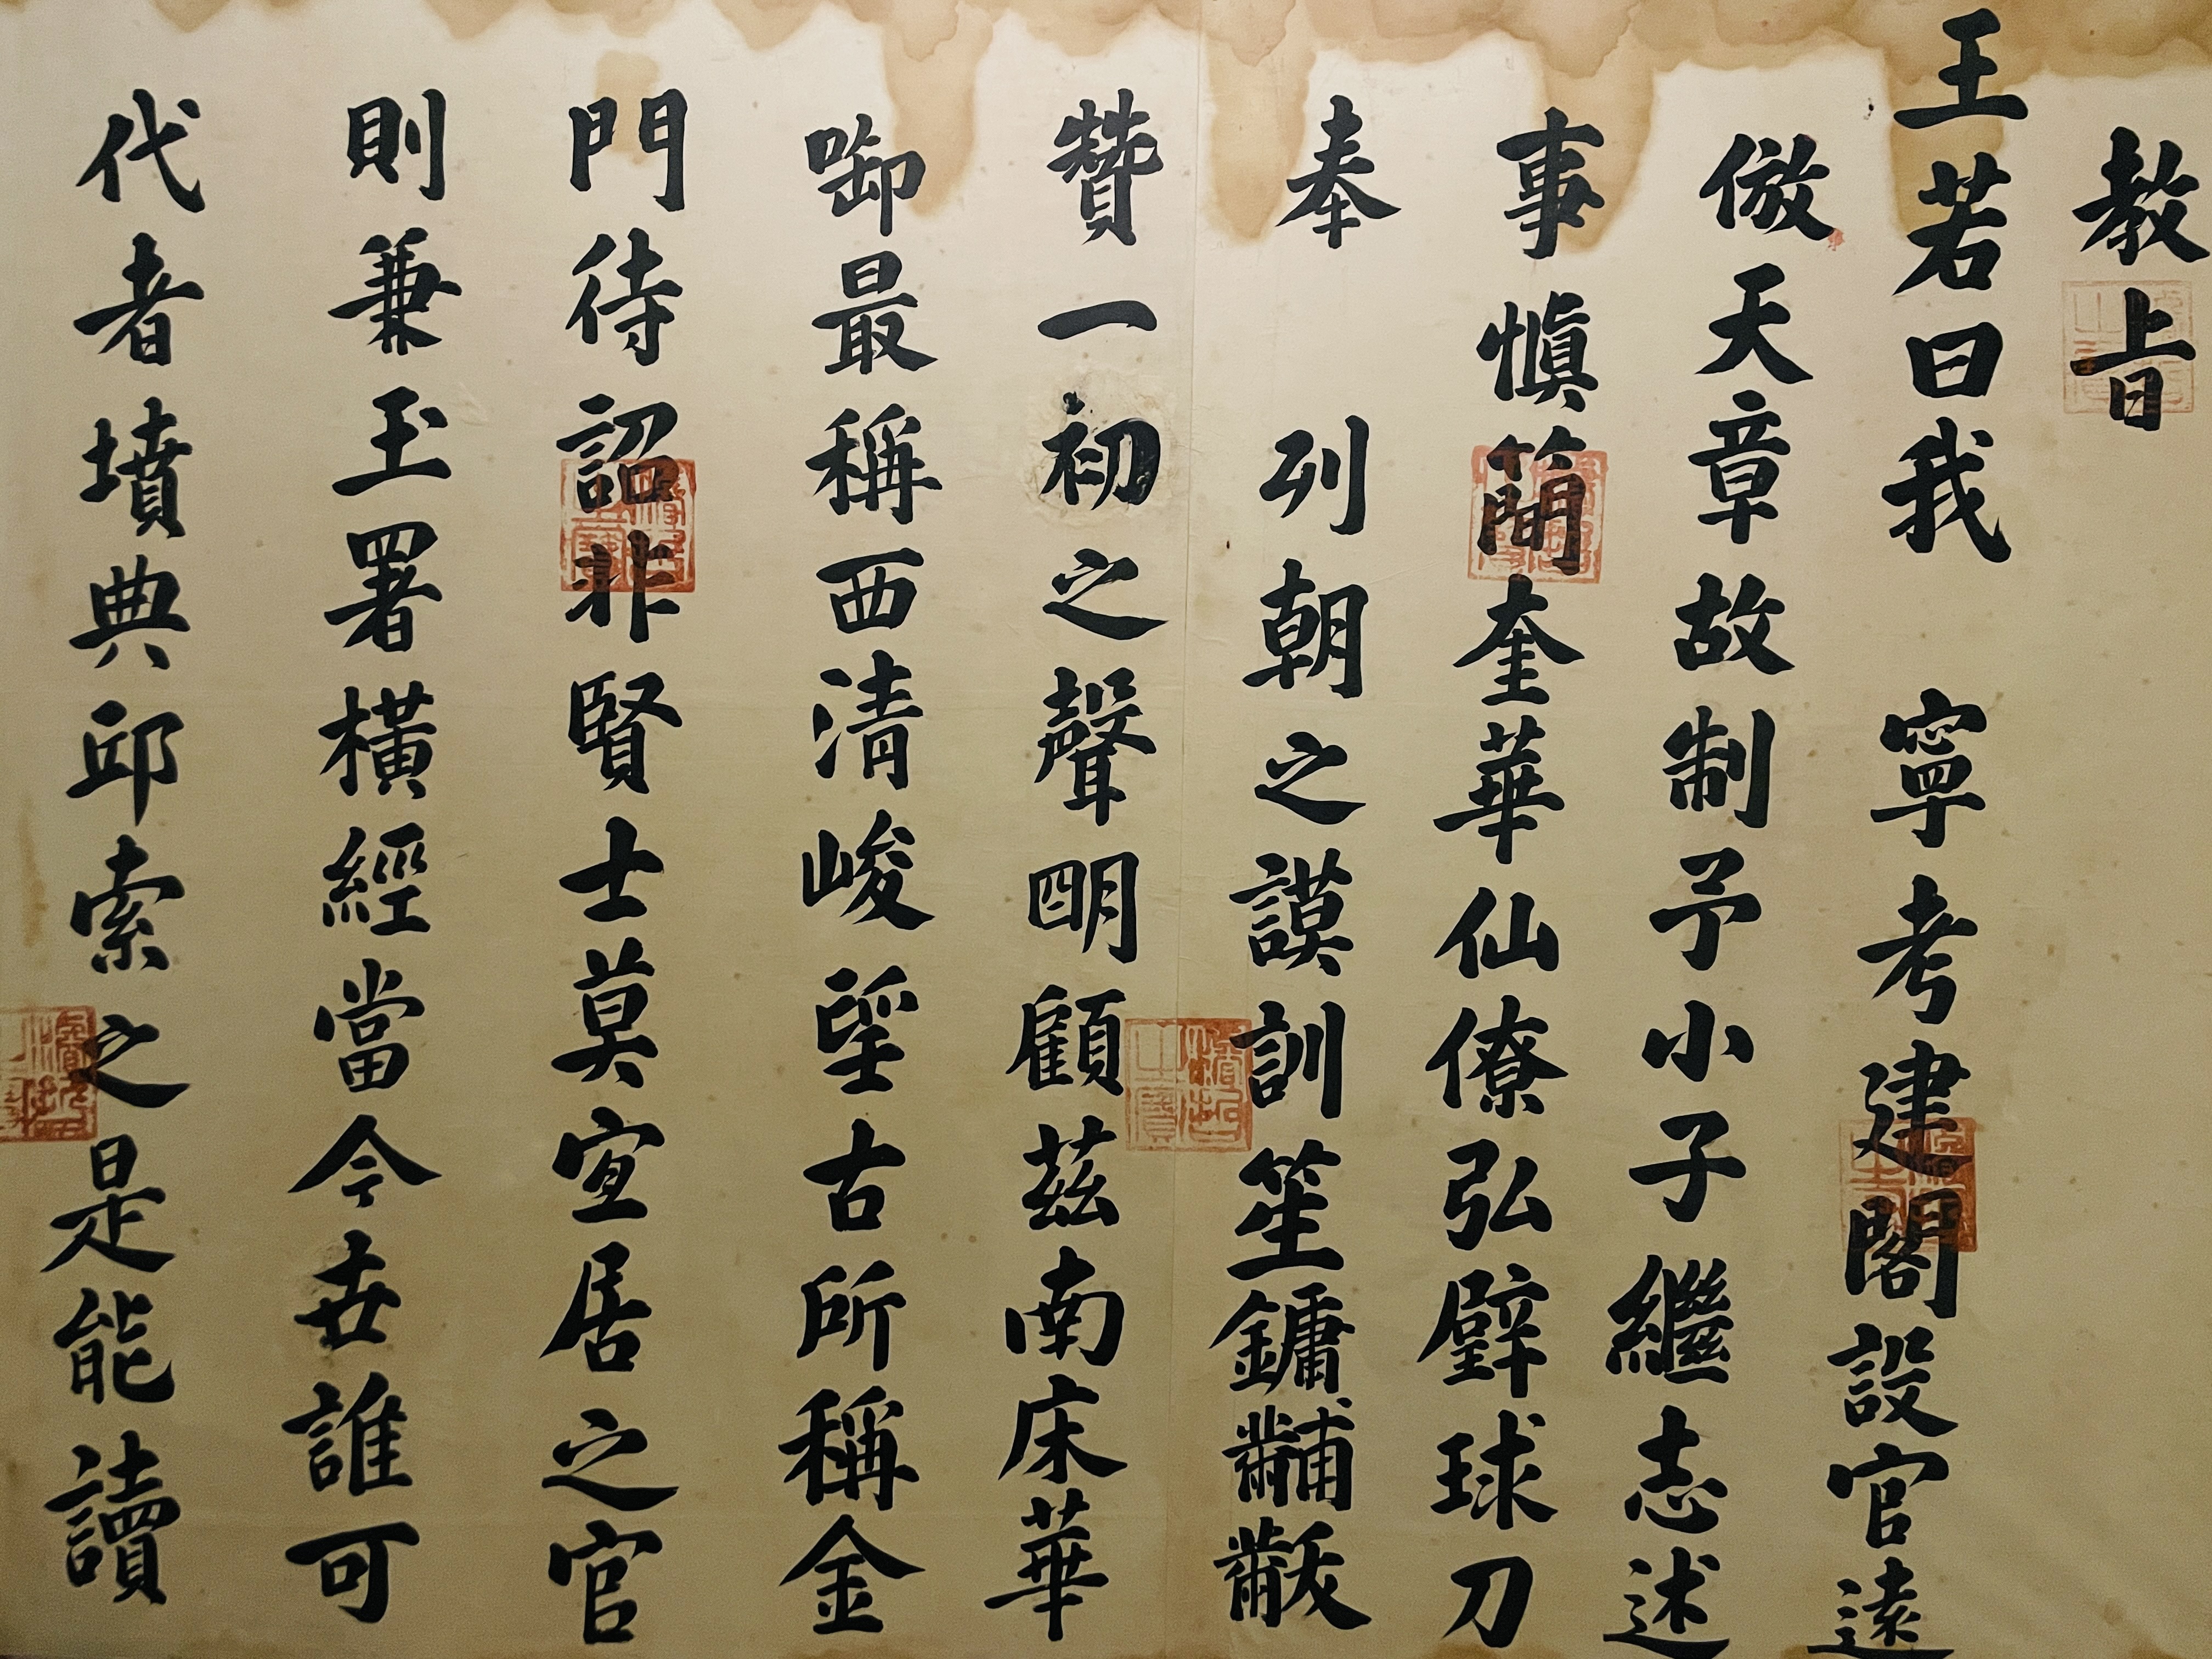 教旨
王若曰我 寧考建閣設官遠
倣天章故制予小子繼志述
事愼簡奎華仙僚弘璧球刀
奉 列朝之謨訓笙鏞黼黻
贊一初之聲明顧茲南床華
啣最稱西清峻望古所稱金
門待詔非賢士莫宜居之官
則兼玉署橫經當今世誰可
代者墳典邱索之是能讀